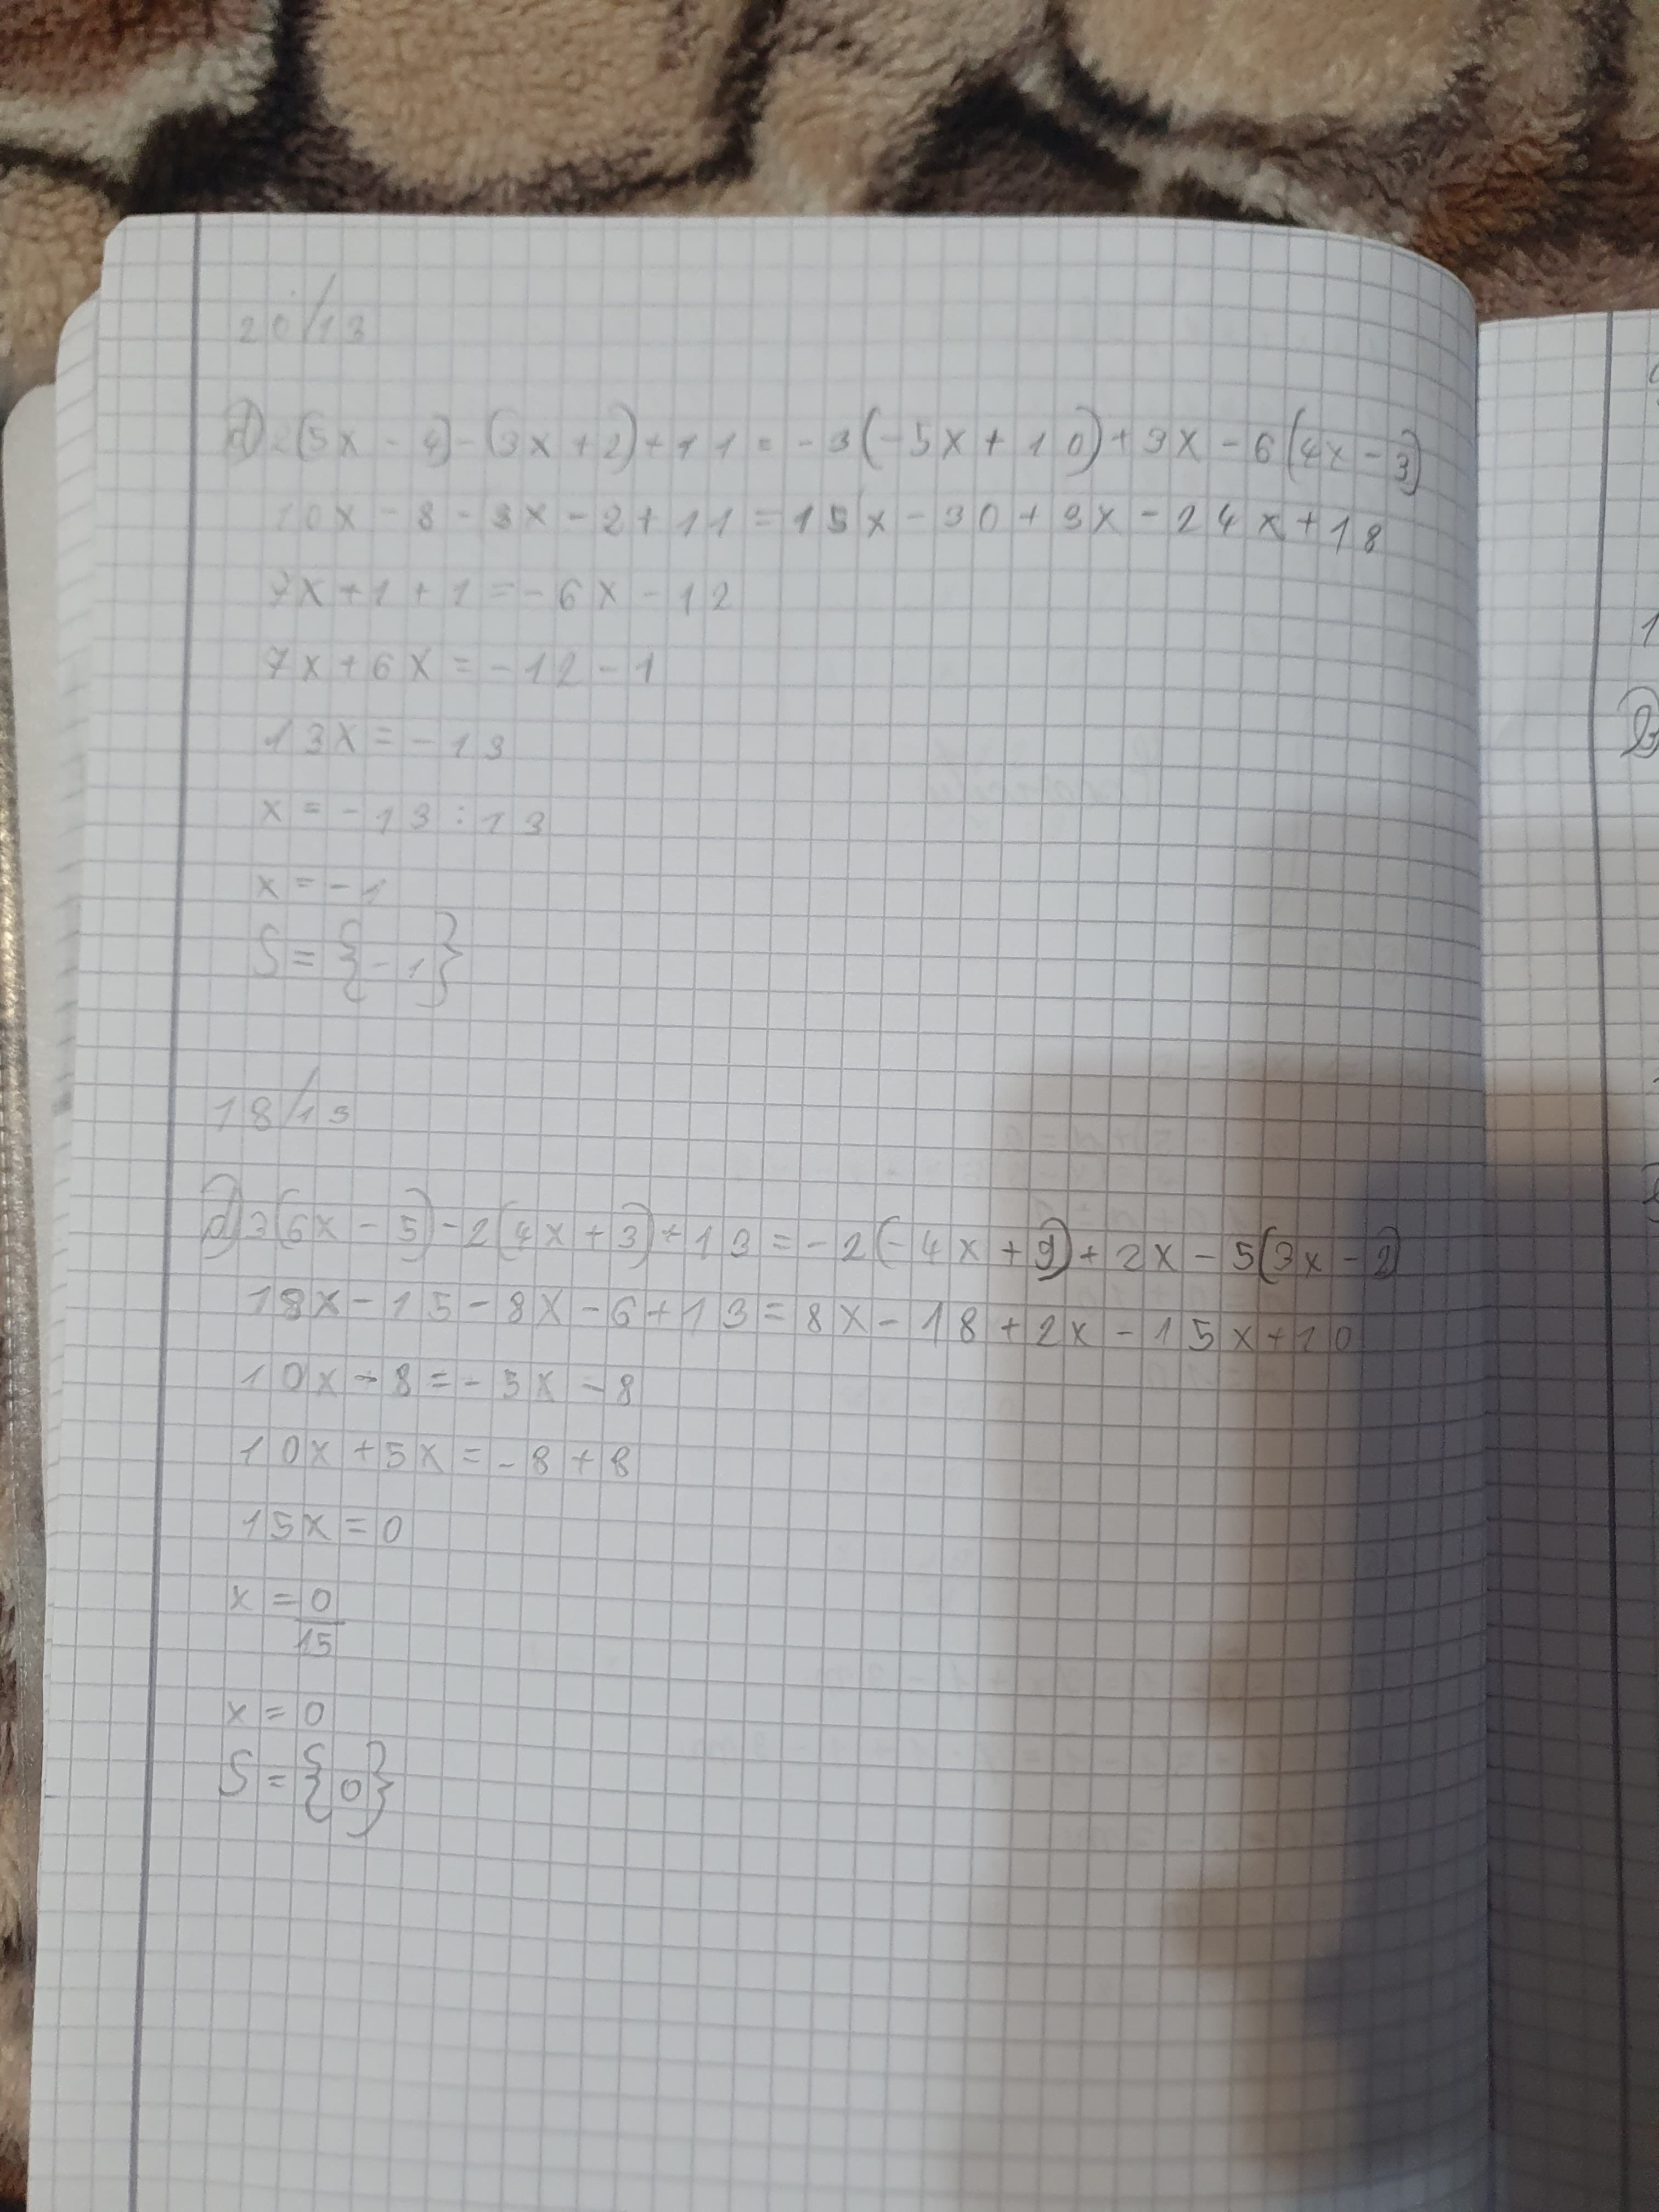 20/13
d) 2(5x - 4) - (3x + 2) + 11 = -3(-5x + 10) + 3x - 6(4x - 3)
10x - 8 - 3x - 2 + 11 = 15x - 30 + 3x - 24x + 18
7x + 1 + 1 = -6x - 12
7x + 6x = -12 - 1
13x = -13
x = -13 : 13
x = -1
S = {-1}
18/13
d) 3(6x - 5) - 2(4x + 3) + 13 = -2(-4x + 9) + 2x - 5(3x - 2)
18x - 15 - 8x - 6 + 13 = 8x - 18 + 2x - 15x + 10
10x - 8 = -5x - 8
10x + 5x = -8 + 8
15x = 0
x = 0/15
x = 0
S = {0}